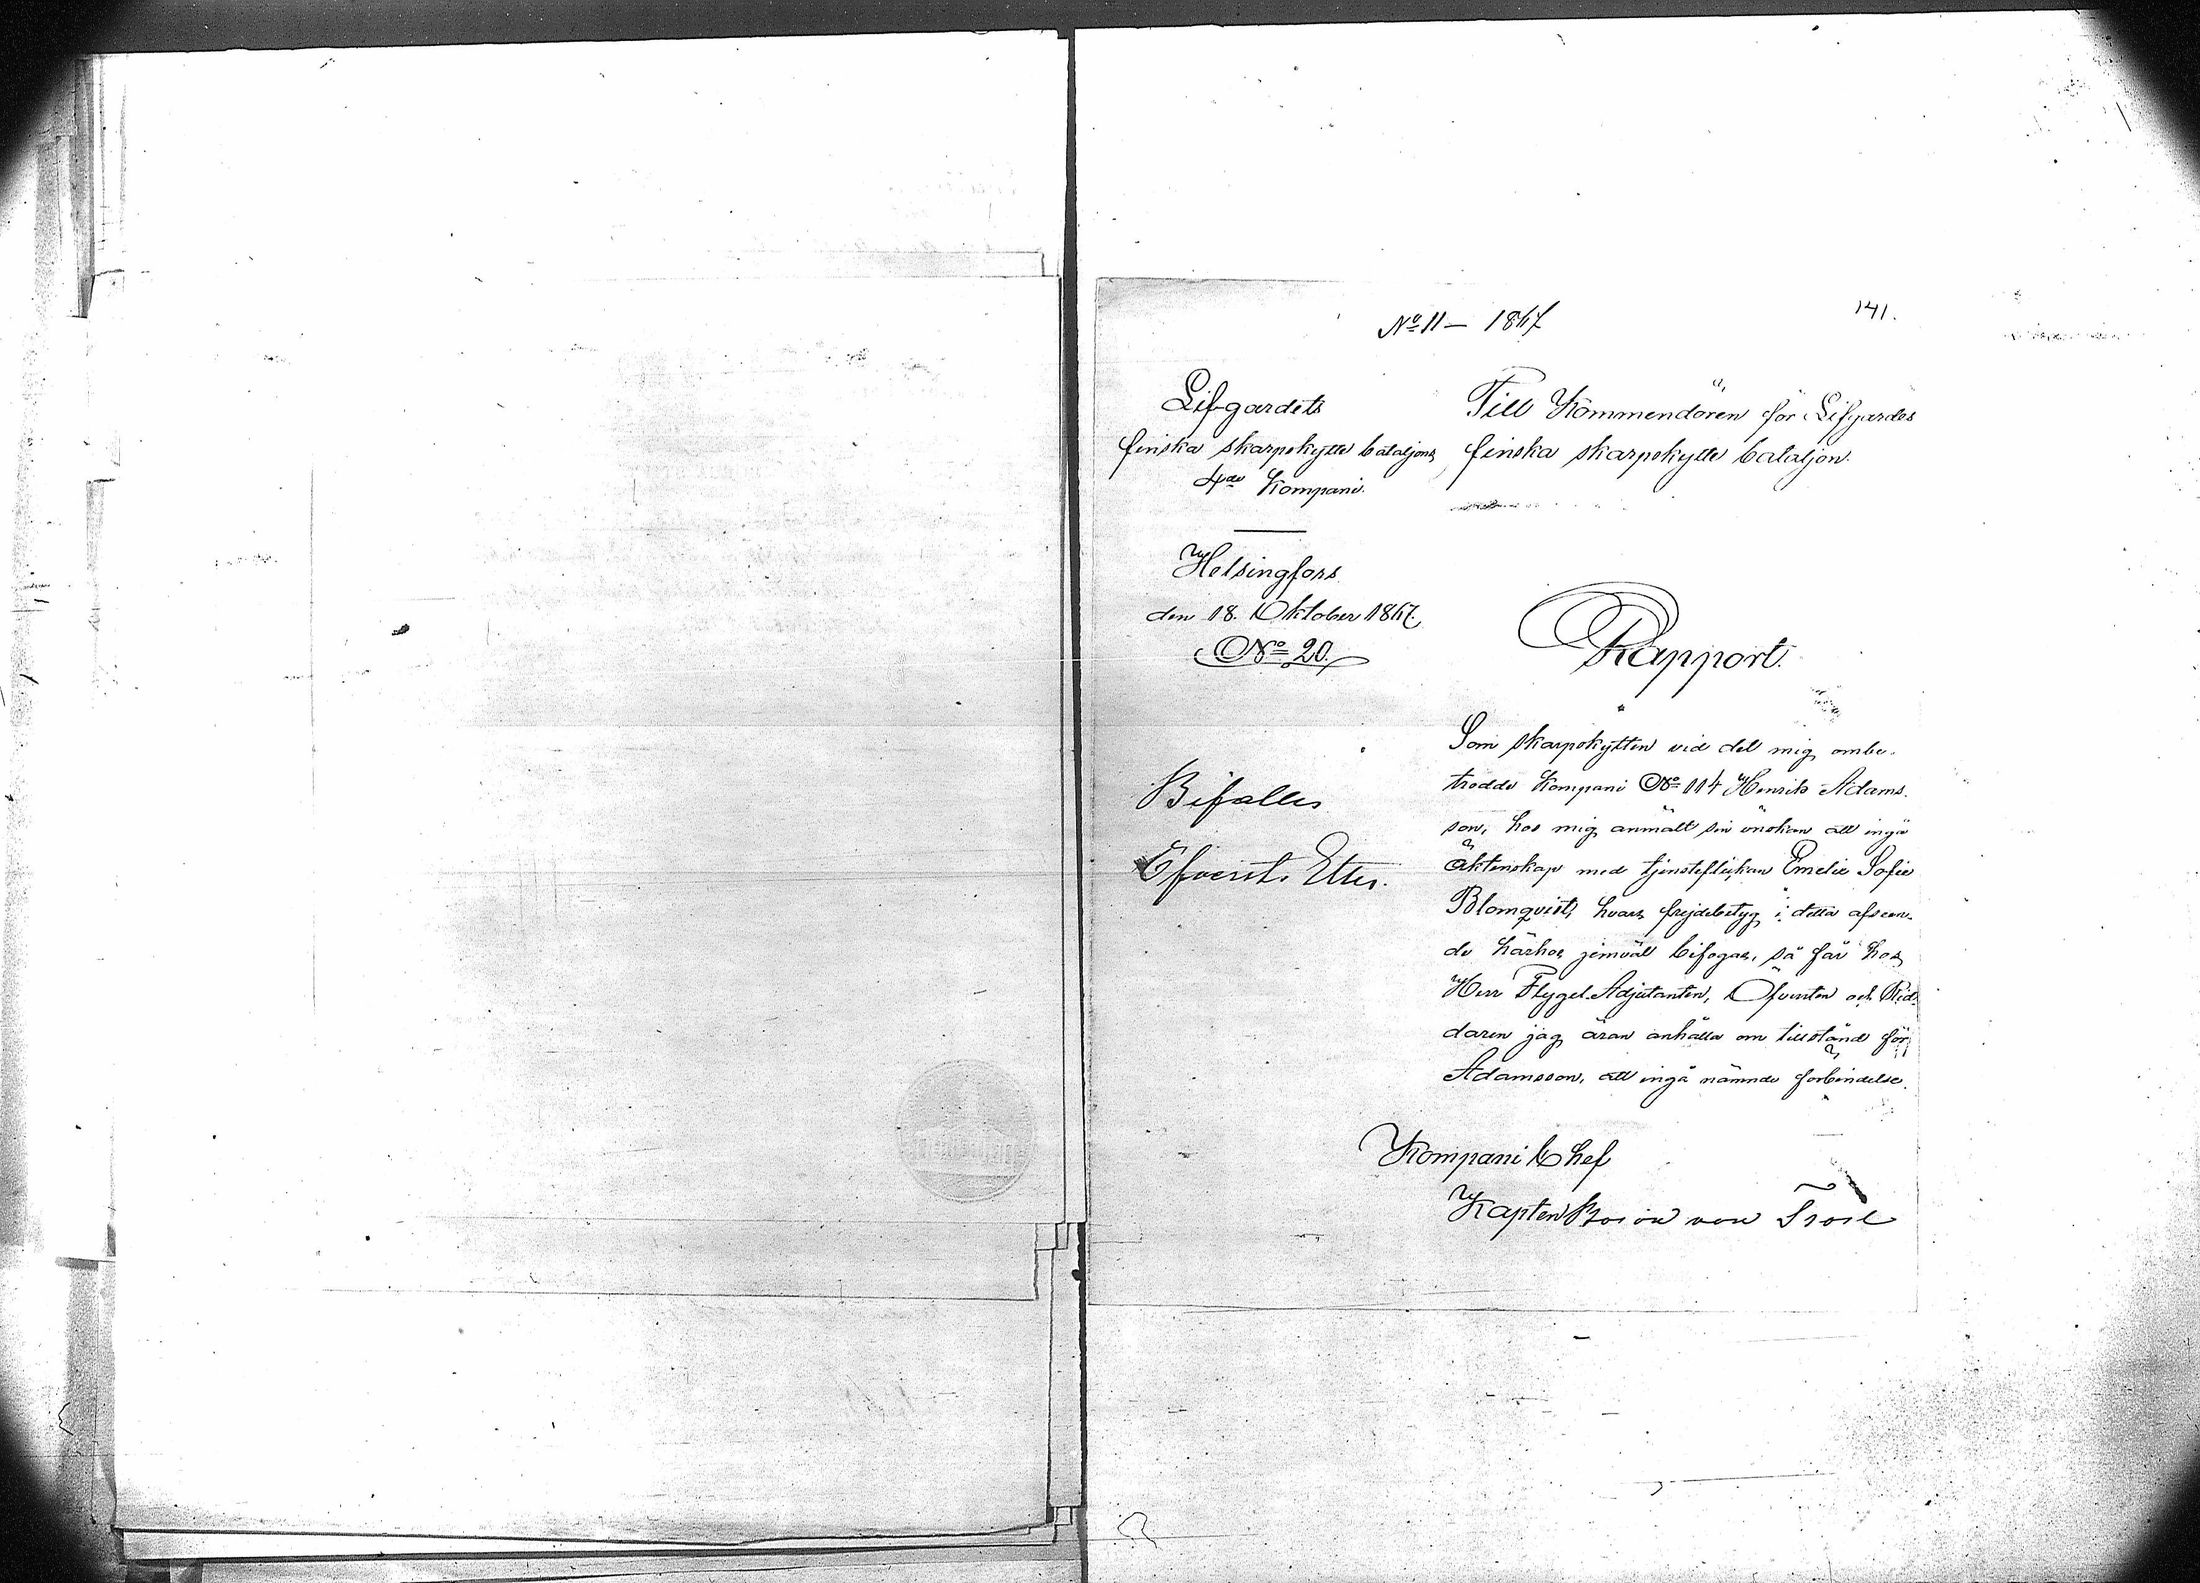 No 11 — 1867
141.
Lifgardets
finska skarpskytte bataljons
4de Kompani.
Helsingfors
den 18. Oktober 1867.
No 20.
Till Kommendören för Lifgardes
finska skarpskytte bataljon.
Rapport.
Som skarpskytten vid det mig ombe-
trodde Kompani No 114 Henrik Adams-
son, hos mig anmält sin önskan att ingå
äktenskap med tjensteflickan Emelie Sofie
Blomqvist, hvars frejdebetyg i detta afseen-
de härhos jemväl bifogas, så får hos
Herr Flygel-Adjutanten, Öfversten och Rid-
daren jag äran anhålla om tillstånd för
Adamsson, att ingå nämnde förbindelse.
Bifalles
Öfverst. Etter.
Kompani Chef
Kapten von